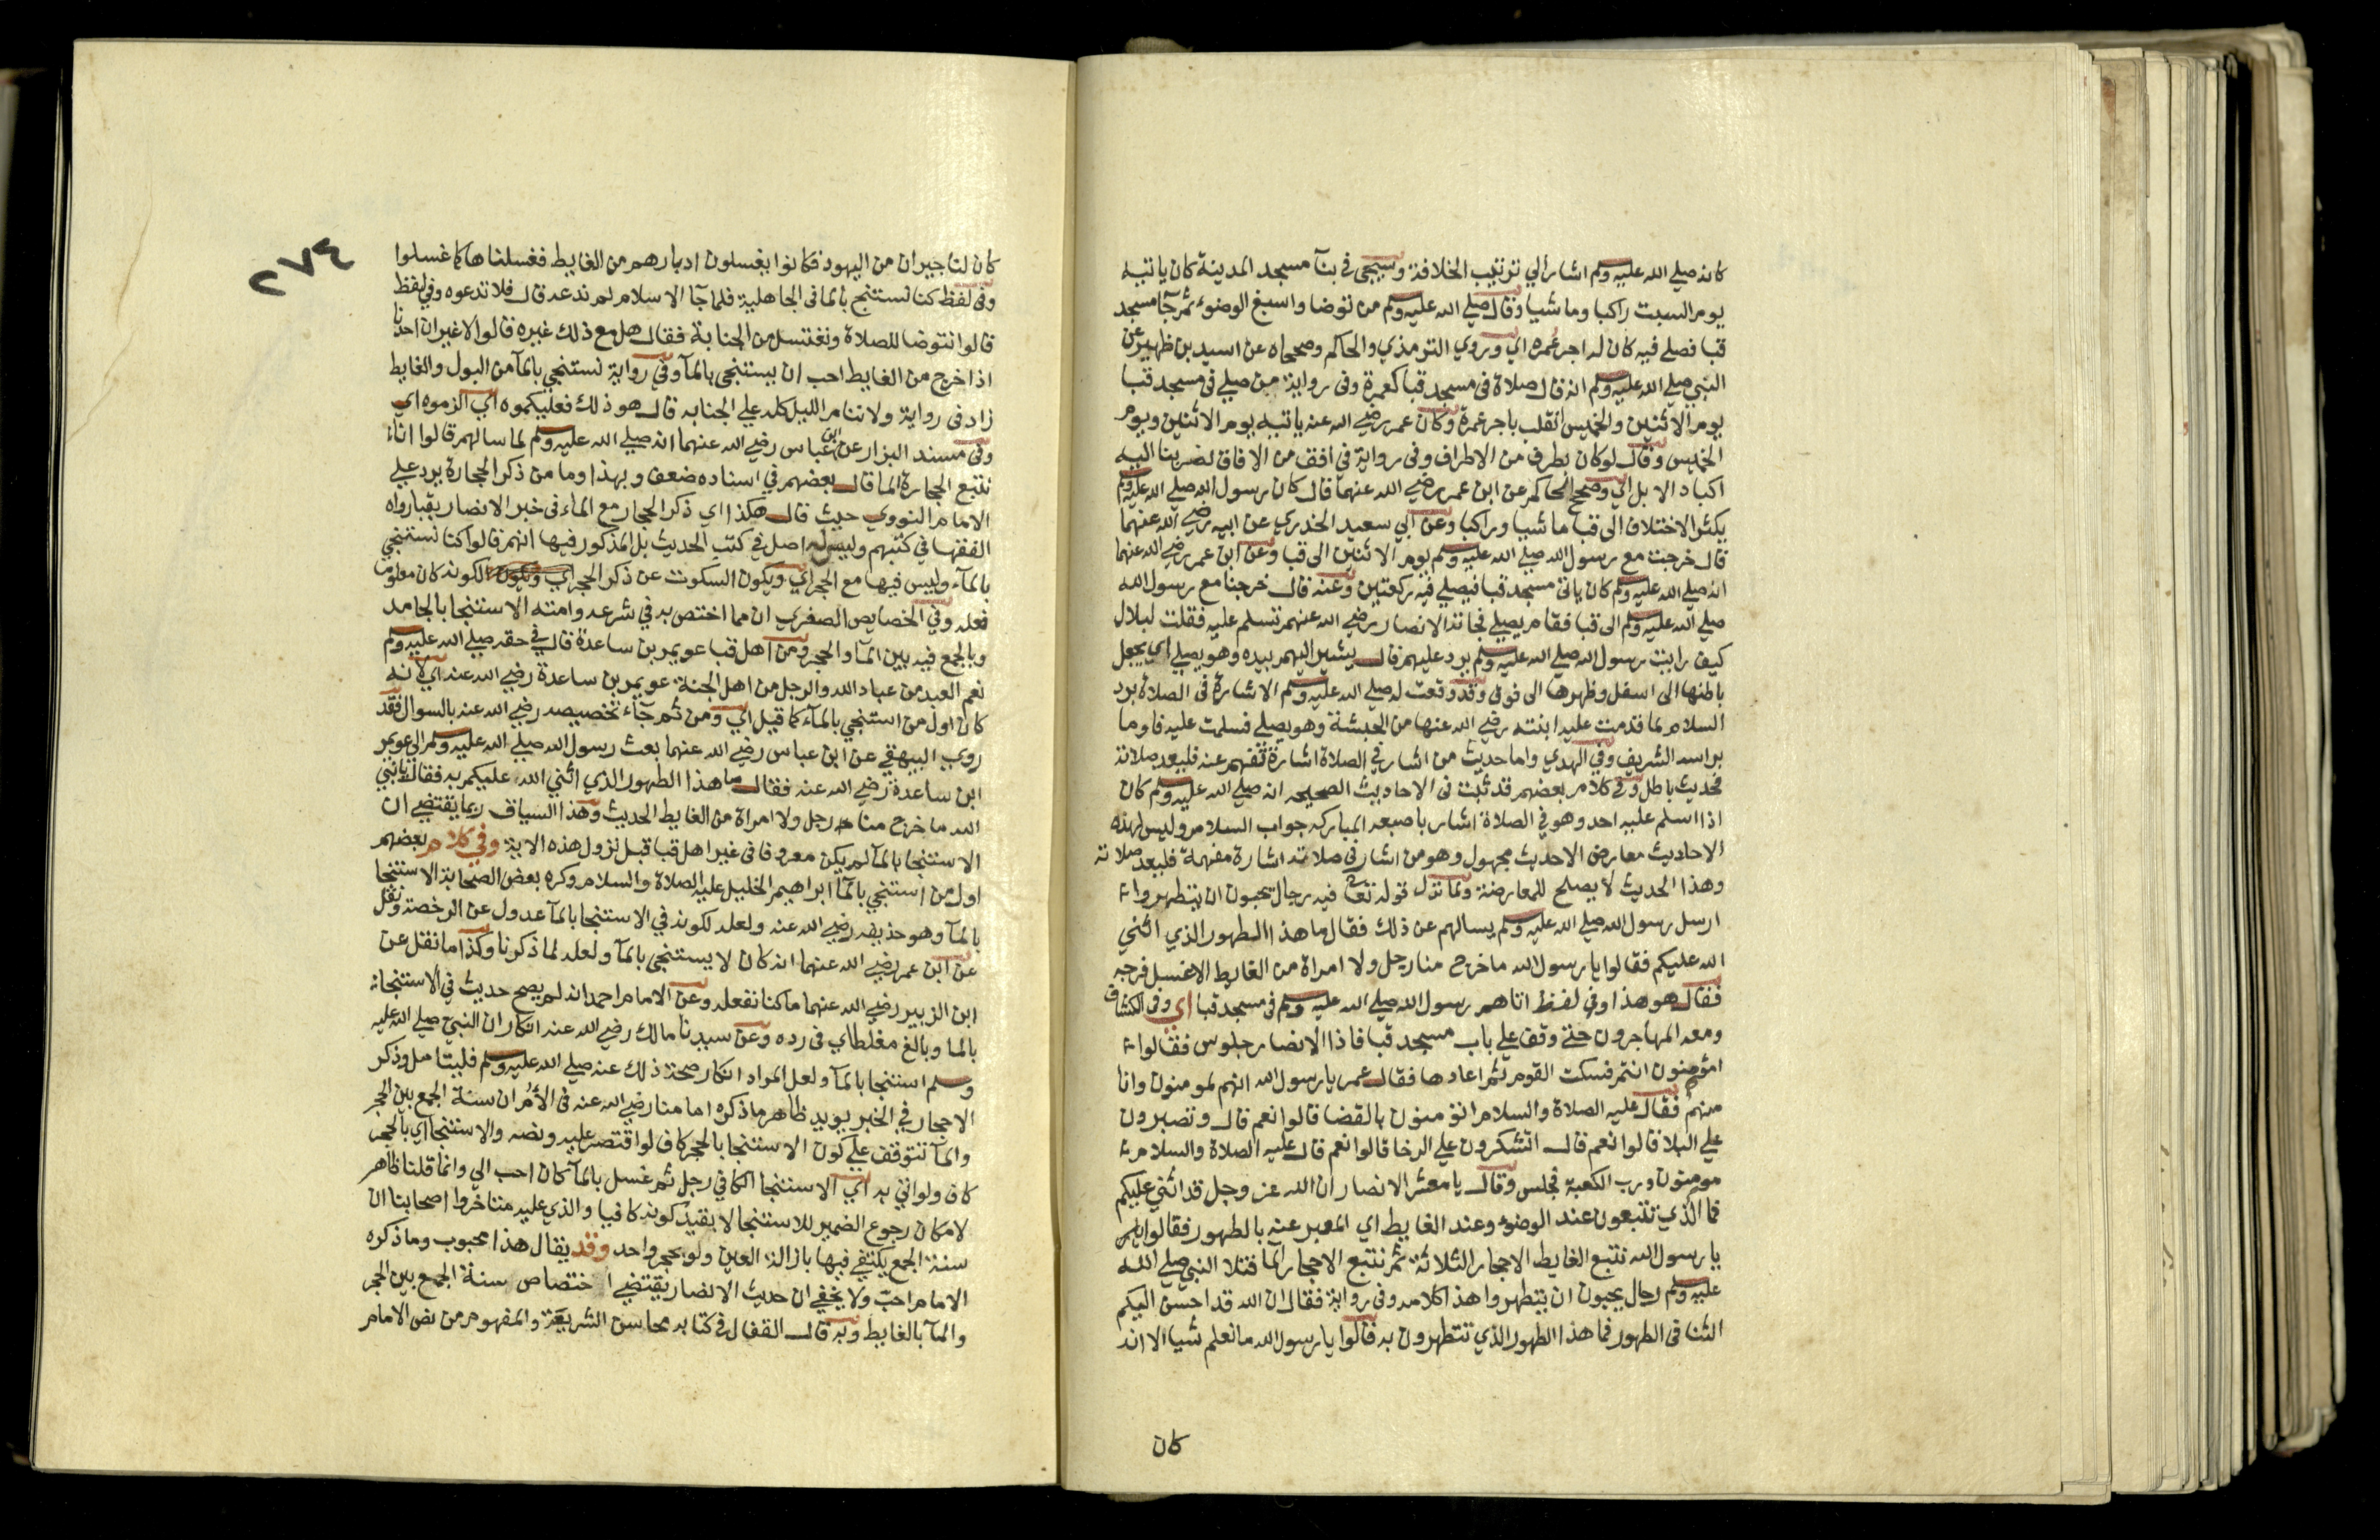 كانه صلي الله عليه وسلم اشار الي ترتيب الخلافة وسيجى في بنآ مسجد المدينة كان ياتيه
يوم السبت راكبا وماشيا وقال صلي الله عليه وسلم من توضا واسبغ الوضوء ثم جآ مسجد
قبا فصلي فيه كان له اجر عمره اي وروي الترمذي والحاكم وصححاه عن اسيد بن ظهير عن
النبي صلي الله عليه وسلم انه قال صلاة في مسجد قبا كعمرة وفى رواية من صلي في مسجد قبا
يوم الاثنين والخميس انقلب باجر عمرة وكان عمر رضي الله عنه ياتيه يوم الاثنين ويوم
الخميس وقال لوكان بطرف من الاطراف وفى رواية في افق من الافاق لضربنا اليه
اكباد الابل اي وصحح الحاكم عن ابن عمر رضي الله عنهما قال كان رسول الله صلي الله عليه وسلم
يكثر الاختلاف الى قبا ماشيا وراكبا وعن ابي سعيد الخدري عن ابيه رضي الله عنهما
قال خرجت مع رسول الله صلي الله عليه وسلم يوم الاثنين الى قبا وعن ابن عمر رضي الله عنهما
انه صلي الله عليه وسلم كان ياتى مسجد قبا فيصلي فيه ركعتين وعنه قال خرجنا مع رسول الله
صلي الله عليه وسلم الى قبا فقام يصلي فجاته الانصار رضي الله عنهم تسلم عليه فقلت لبلال
كيف رايت رسول الله صلي الله عليه وسلم يرد عليهم قال يشير اليهم بيده وهو يصلي اي يجعل
باطنها الى اسفل وظهرها الى فوق وقد وقعت له صلي الله عليه وسلم الاشارة فى الصلاة برد
السلام لما قدمت عليه ابنته رضي الله عنها من الحبشة وهو يصلي فسلمت عليه فاوما
براسه الشريف وفي الهدي واما حديث من اشار في الصلاة اشارة تفهم عنه فليعد صلاته
فحديث باطل وفي كلام بعضهم قد ثبت فى الاحاديث الصحيحه انه صلي الله عليه وسلم كان
اذا اسلم عليه احد وهو في الصلاة اشار باصبعه المباركه جواب السلام وليس لهذه
الاحاديث معارض الا حديث مجهول وهو من اشار فى صلاته اشارة مفهمة فليعد صلاته
وهذا الحديث لا يصلح للمعارضة ولما نزل قوله تعالى فيه رجال يحبون ان يتطهروا
ارسل رسول الله صلي الله عليه وسلم يسالهم عن ذلك فقال ما هذا الطهور الذي اثني
الله عليكم فقالوا يا رسول الله ما خرج منا رجل ولا امراة من الغايط الا غسل فرجه
فقال هو هذا وفي لفظ اتاهم رسول الله صلي الله عليه وسلم فى مسجد قبا اي وفى الكشاف
ومعه المهاجرون حتي وقف علي باب مسجد قبا فاذا الانصار جلوس فقالوا
امؤمنون انتم فسكت القوم ثم اعادها فقال عمر يا رسول الله انهم لمومنون وانا
منهم فقال عليه الصلاة والسلام اتؤمنون بالقضا قالوا نعم قال وتصبرون
علي البلا قالوا نعم قال اتشكرون علي الرخا قالوا نعم قال عليه الصلاة والسلام
مومنون ورب الكعبة فجلس وقال يا معشر الانصار ان الله عز وجل قد اثني عليكم
فما الذي تتبعون عند الوضوء وعند الغايط اي المعبر عنه بالطهور فقالوا
يا رسول الله نتبع الغايط الاحجار الثلاثة ثم نتبع الاحجار المآ فتلا النبي صلي الله
عليه وسلم رجال يحبون ان يتطهروا هذا كلامه وفى رواية فقال ان الله قد احسن اليكم
الثنا في الطهور فما هذا الطهور الذي تتطهرون به قالوا يا رسول الله ما نعلم شيا الا انه
كان
٢٧٤
كان لنا جيران من اليهود فكانوا يغسلون ادبارهم من الغايط فغسلناها كما غسلوا
وفى لفظ كنا نستنج بالما فى الجاهلية فلما جآ الاسلام لم ندعه قال فلا تدعوه وفي لفظ
قالوا نتوضا للصلاة ونغتسل من الجنابة فقال هل مع ذلك غيره قالوا لا غير ان احدنا
اذا خرج من الغايط احب ان يستنجى بالمآ وفي رواية نستنجي بالمآ من البول والغايط
زاد فى رواية ولا ننام الليل كله علي الجنابه قال هو ذلك فعليكموه اي الزموه اي
وفى مسند البزار عن ابن عباس رضي الله عنهما انه صلي الله عليه وسلم لما سالهم قالوا انا
نتبع الحجارة الما قال بعضهم في اسناده ضعف وبهذا وما من ذكر الحجارة يرد علي
الامام النووي حيث قال هكذا اي ذكر الحجار مع الماء في خبر الانصار بقبا رواه
الفقها في كتبهم وليس له اصل في كتب الحديث بل المذكور فيها انهم قالوا كنا نستنجي
بالمآء وليس فيها مع الحجر اي ويكون السكوت عن ذكر الحجر اي ويكون لكونه كان معلوم
فعله وفي الخصايص الصغري ان مما اختص به في شرعه وامته الاستنجا بالجامد
وبالجمع فيه بين المآ والحجر ومن اهل قبا عويمر بن ساعدة قال في حقه صلي الله عليه وسلم
نعم العبد من عباد الله والرجل من اهل الجنة عويمر بن ساعدة رضي الله عنه اي لانه
كان اول من استنجي بالمآء كما قيل اي ومن ثم جآء تخصيصه رضي الله عنه بالسوال فقد
روي البيهقي عن ابن عباس رضي الله عنهما بعث رسول الله صلي الله عليه وسلم الي عويمر
ابن ساعدة رضي الله عنه فقال ما هذا الطهور الذي اثني الله عليكم به فقال يا نبي
الله ما خرج منا رجل ولا امراة من الغايط الحديث وهذا السياق ربما يقتضي ان
الاستنجا بالمآ لم يكن معروفا فى غير اهل قبا قبل نزول هذه الاية وفي كلام بعضهم
اول من استنجي بالمآ ابراهيم الخليل عليه الصلاة والسلام وكره بعض الصحابة الاستنجا
بالمآ وهو حذيفه رضي الله عنه ولعله لكونه في الاستنجا بالمآ عدول عن الرخصة ونقل
عن ابن عمر رضي الله عنهما انه كان لا يستنجى بالمآ ولعله لما ذكرنا وكذا ما نقل عن
ابن الزبير رضي الله عنهما ما كنا نفعله وعن الامام احمد انه لم يصح حديث في الاستنجاء
بالما وبالغ مغلطاي فى رده وعن سيدنا مالك رضي الله عنه انكار ان النبي صلي الله عليه
وسلم استنجا بالمآ ولعل المراد انكار صحة ذلك عنه صلي الله عليه وسلم فليتامل وذكر
الاحجار في الخبر يويد ظاهر ما ذكره امامنا رضي الله عنه فى الأم ان سنة الجمع بين الحجر
والمآ تتوقف علي كون الاستنجا بالحجر كاف لو اقتصر عليه ونصه والاستنجا اي بالحجر
كاف ولو اتي به اي الاستنجا الكافي رجل ثم غسل بالمآ كان احب الي وانما قلنا ظاهر
لامكان رجوع الضمير للاستنجا لا بقيد كونه كافيا والذي عليه متاخروا اصحابنا ان
سنة الجمع يكتفي فيها بازالة العين ولو بحجر واحد وقد يقال هذا محبوب وما ذكره
الامام احب ولا يخفي ان حديث الانصار يقتضي اختصاص سنة الجمع بين الحجر
والمآ بالغايط وبه قال القفال في كتابه محاسن الشريعة والمفهوم من نص الامام